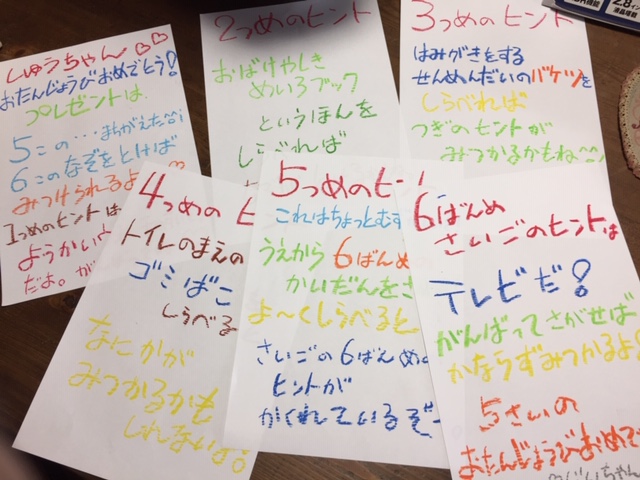 しゅうちゃん♡♡
おたんじょうびおめでとう!
プレゼントは
5この…まちがえた
6この なぞを とけば
みつけられるよ
1つめのヒントは
ようかい
だよ。が
2つめのヒント
おばけやしき
めいろブック
というほんを
しらべれば
3つめのヒント
はみがきをする
せんめんだいのバケツを
しらべれば
つぎのヒントが
みつかるかもね
4つめの ヒ
トイレのまえの
ゴミばこ
しらべる
なにかが
みつかるかも
しれないよ!
5つめのヒン
これはちょっとむず
うえから 6ばんめ
かいだんをさ
よ〜くしらべると
さいごの6ばんめの
ヒントが
かくれているぞー
6ばんめ
さいごのヒントは
テレビだ!
がんばってさがせば
かならずみつかるよ!
5さいの
おたんじょうびおめで
じいちゃん